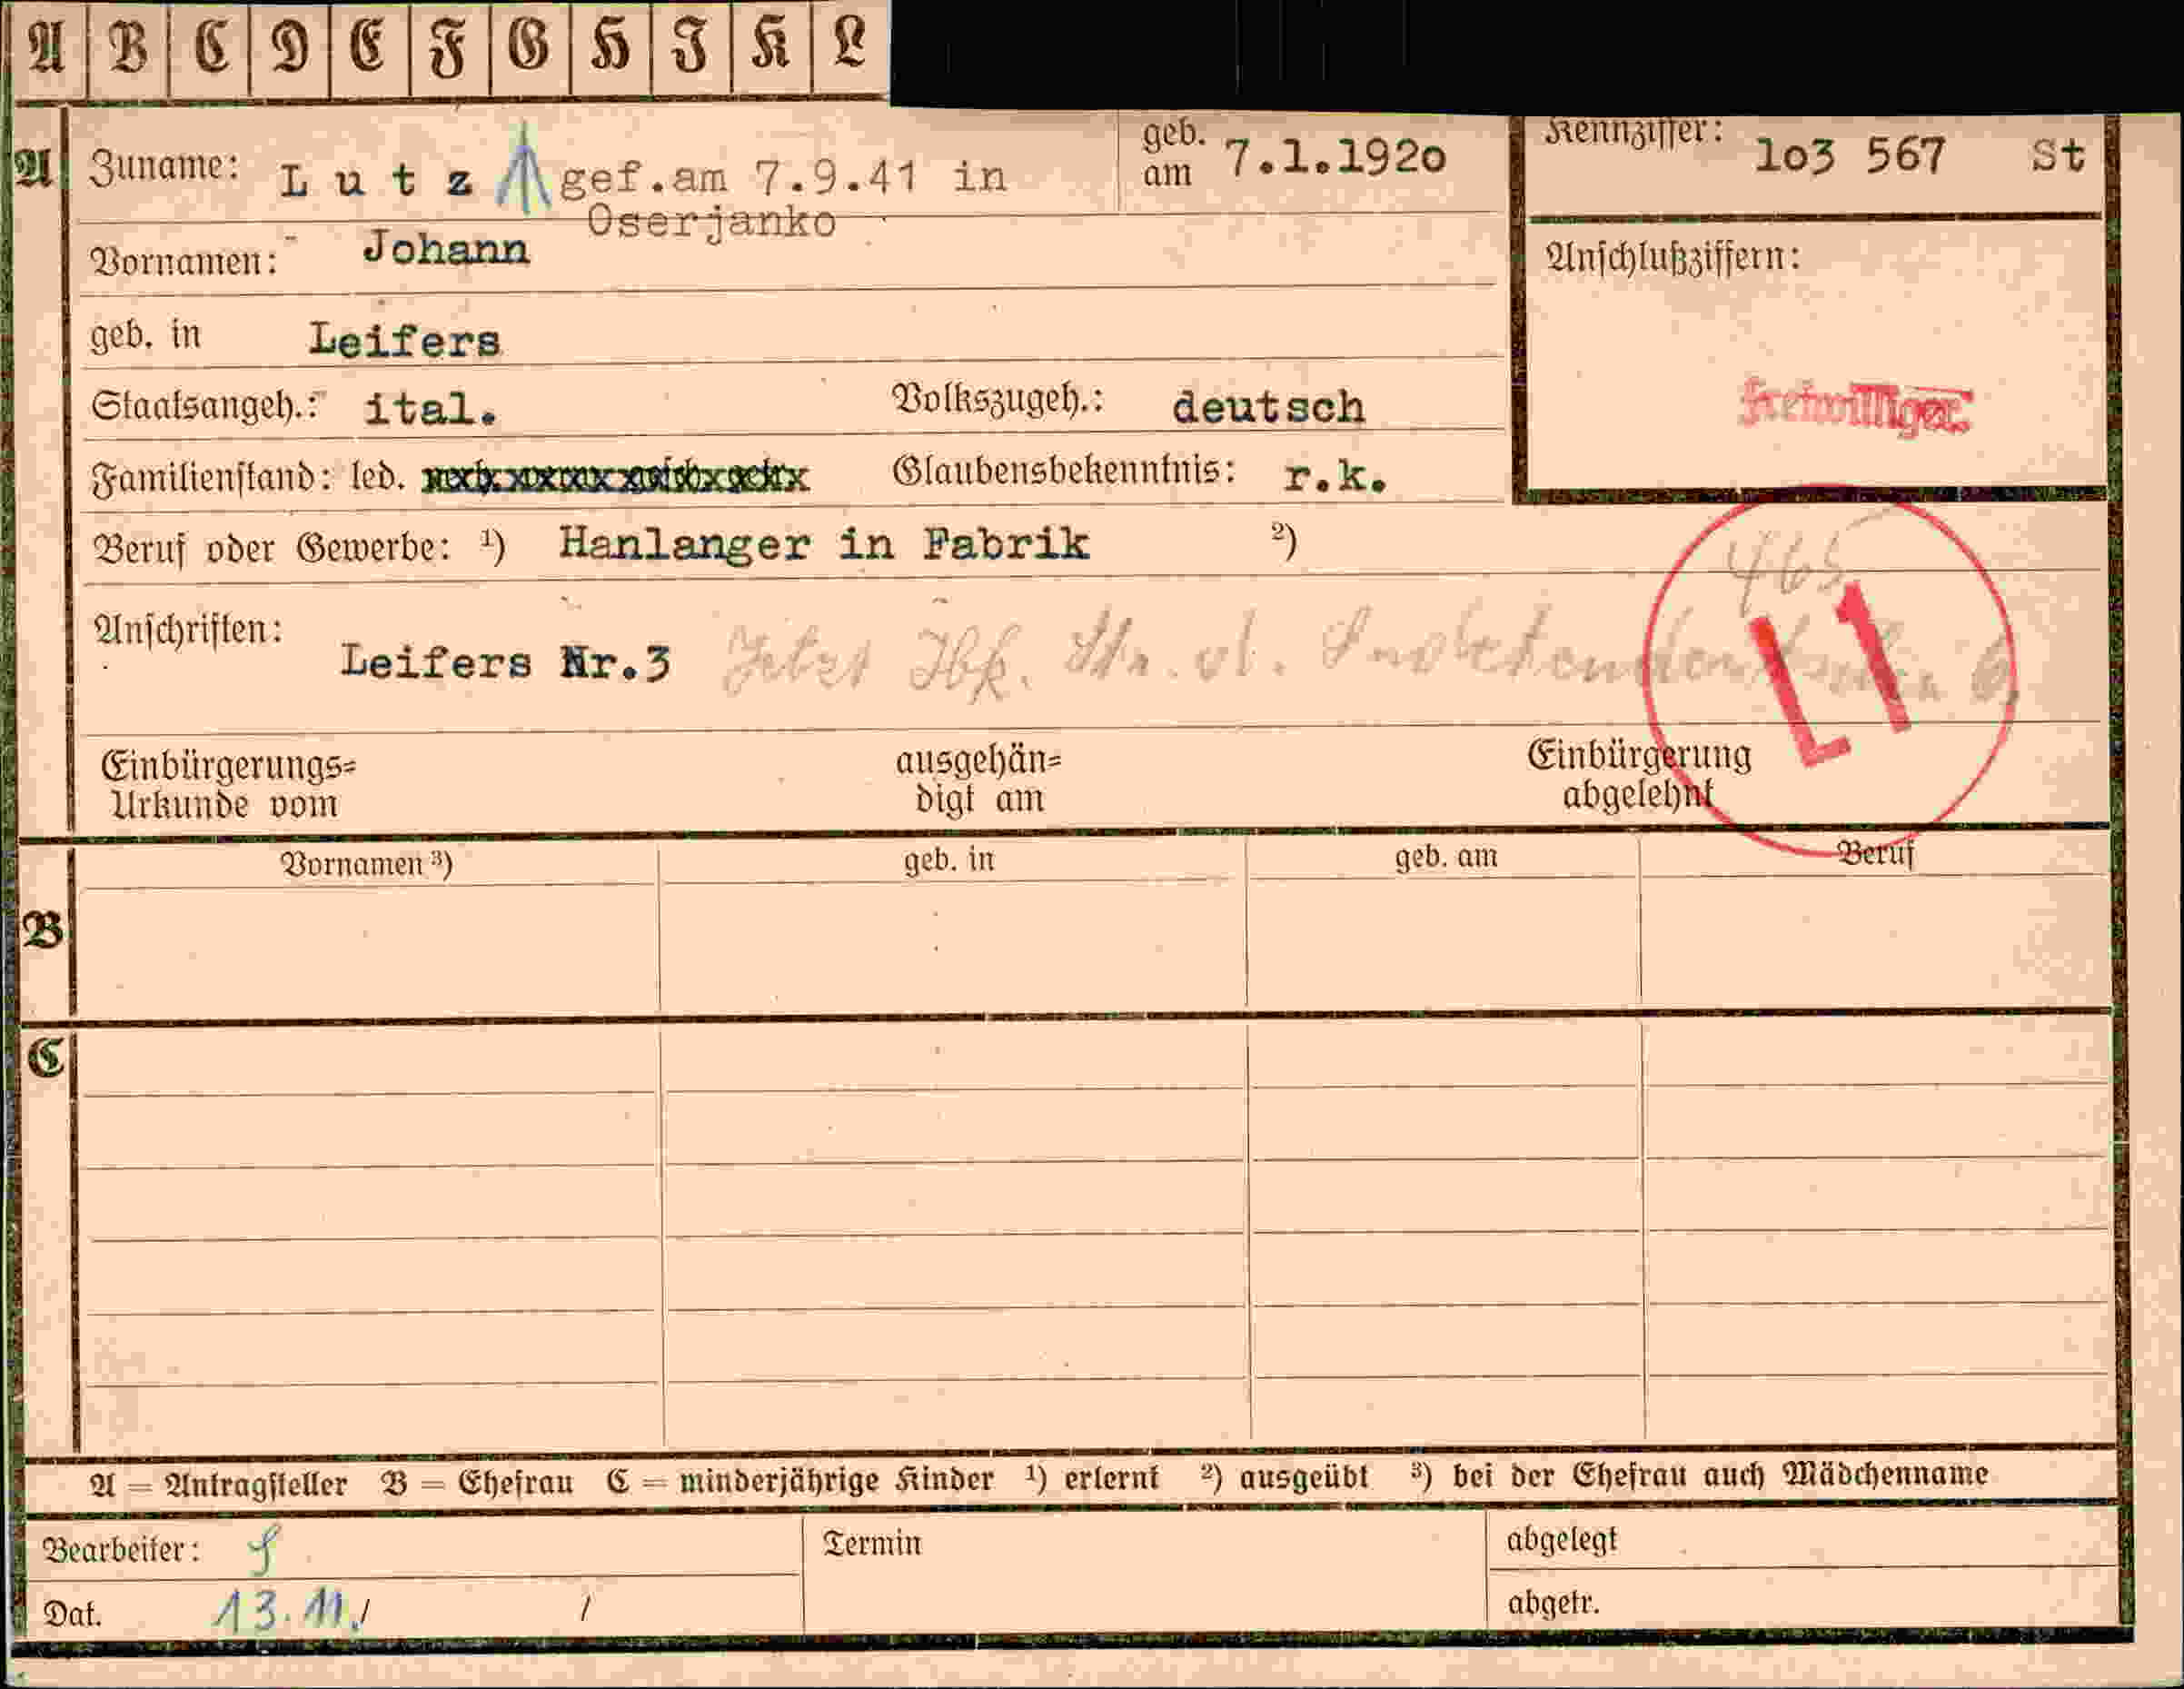 A B C D E F G H I K L
A Zuname: Lutz gef.am 7.9.41 in geb. am 7.1.1920 Kennziffer: 103 567 St
Oserjanko
Vornamen: Johann Anschlußziffern:
geb. in Leifers
Staatsangeh.: ital. Volkszugeh.: deutsch Freiwilliger
Familienstand: led. Glaubensbekenntnis: r.k.
Beruf oder Gewerbe: ¹) Hanlanger in Fabrik ²)
465
Anschriften: Leifers Nr.3 Jetzt Ibk.
L1
Einbürgerungs= ausgehän= Einbürgerung
Urkunde vom digt am abgelehnt
Vornamen ³) geb. in geb. am Beruf
B
C
A = Antragsteller B = Ehefrau C = minderjährige Kinder ¹) erlernt ²) ausgeübt ³) bei der Ehefrau auch Mädchenname
Bearbeiter: Termin abgelegt
Dat. 13.11./ / abgetr.